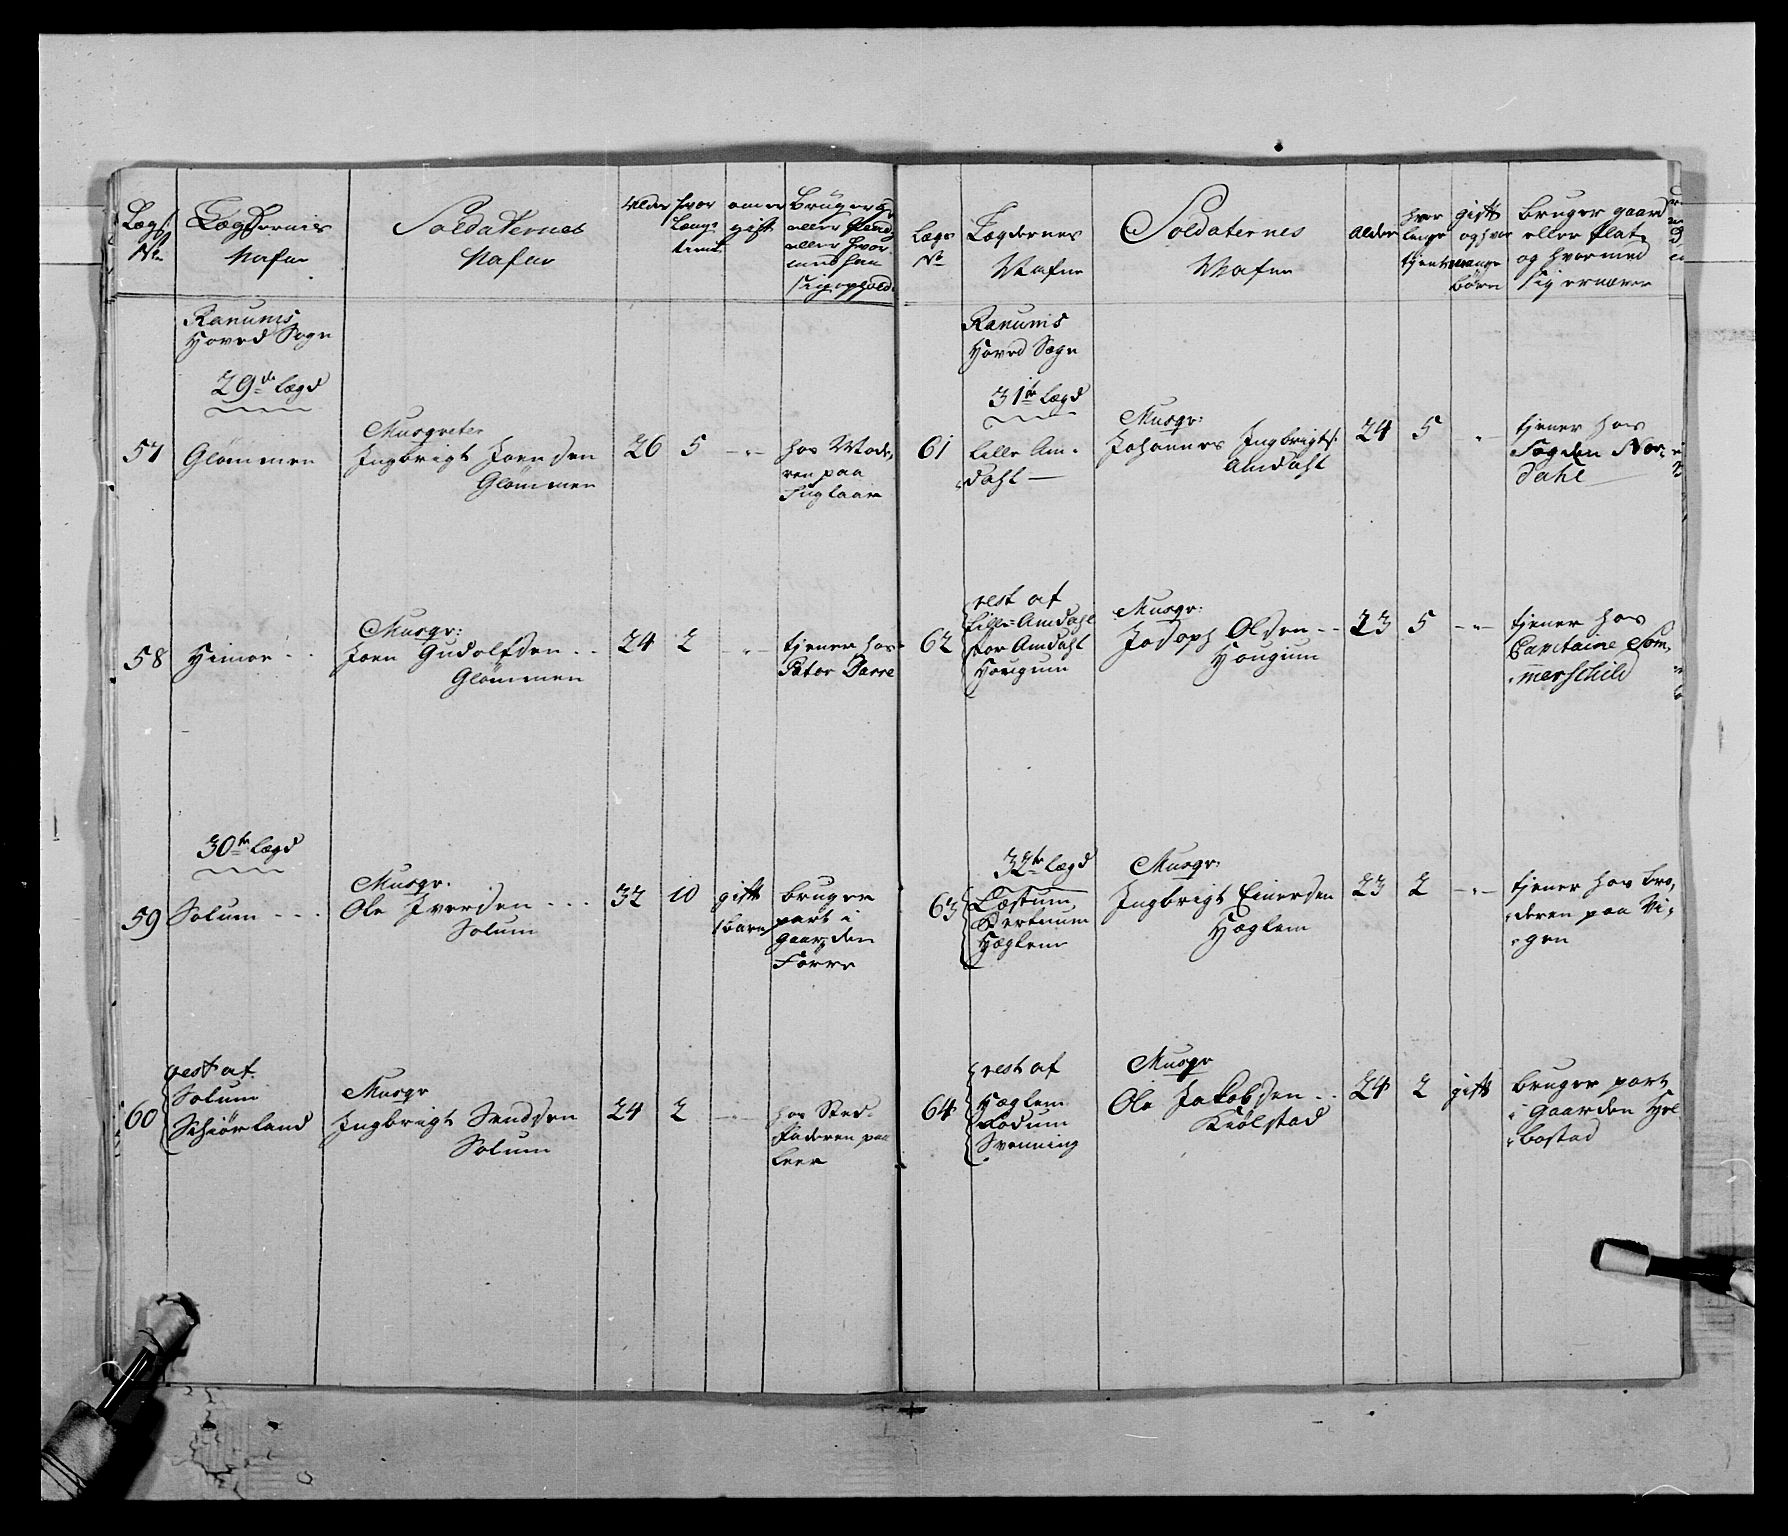 Lægs
No
Lægdernes
Nafne
Soldaternes
Nafne
Alder
hvor
længe
tient
om er
gift
Bruger gr.
eller Plads
eller hvor
med han
sig ophold.
Ranums
Hoved Sogn
29de Lægd
57
Glømmen
Musqueter
Ingbrigt Joensen
Glømmen
26
5
hos Mode,
ren paa
Fuglaar
58
Himoe
Musqr:
Joen Gudolfsen
Glømmen
24
2
tjener hos
Peter Darre
30te Lægd
59
Solum
Musqr.
Ole Iversen
Solum
32
10
gift
1 barn
bruger
part i
Gaarden
Førre
60
rest af
Solum
Schiørland
Musqr
Ingbrigt Sendsen
Solum
24
2
hos Sted:
faderen paa
Leer
Lægs
No
Lægdernes
Nafne
Soldaternes
Nafne
Alder
hvor
længe
tjent
gift
og hvor
mange
børn
bruger gaard
eller Plads
og hvormed
sig ernærer
Ranums
Hoved Sogn
31te Lægd
61
Lille Am-
dahl
Musqr:
Johannes Ingbrigts:
Amdahl
24
5
tjener hos
Fogden Nor-
dahl
62
rest af
Lille-Amdahl
stor Amdahl
Hougum
Musqr:
Joseph Olsen
Hougum
23
5
tjener hos
Capitaine Som,
merschild
32te Lægd
63
Læstum
Bertnum
Hæglem
Musqr:
Ingbrigt Einersen
Hæglem
23
2
tjener hos bro,
deren paa Vi-
gen
64
rest af
Hæglem
Rodum
Svenning
Musqr
Ole Jakobsen
Kiølstad
24
2
gift
bruger part
i Gaarden Hyl
bostad